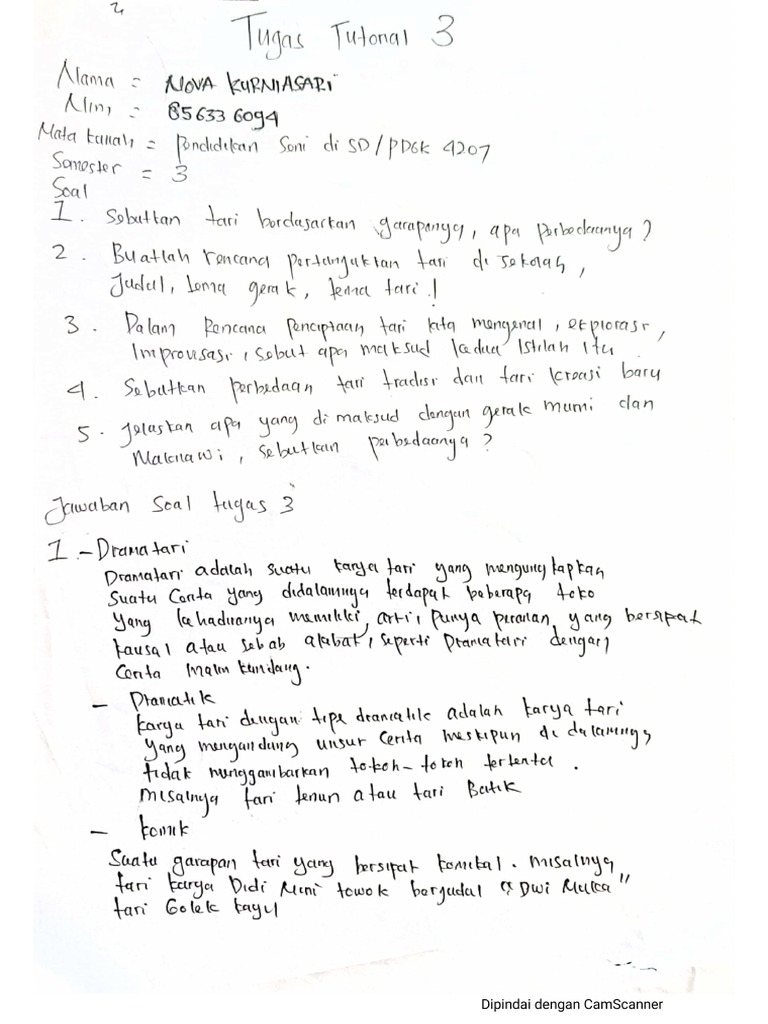 Tugas Tutorial 3
Nama = NOVA KURNIASARI
Nim, = 856336094
Mata kuliah = Pendidikan Seni di SD/PDGK 4207
Semester = 3
Soal
1. Sebutkan tari berdasarkan garapanya, apa perbedaanya?
2. Buatlah rencana pertunjuktan tari di sekolah,
Judul, tema gerak, tema tari!
3. Dalam Rencana Penciptaan tari kita mengenal, explorasi,
Improvisasi, sebut apa maksud kedua Istilah Itu
4. Sebutkan perbedaan tari tradisi dan tari kreasi baru
5. Jelaskan apa yang di maksud dengan gerak murni dan
Maknawi, sebutkan perbedaanya?
Jawaban Soal tugas 3
1. - Dramatari
Dramatari adalah suatu karya tari yang mengungkapkan
Suatu Cerita yang didalamnya terdapat beberapa toko
yang kehadiranya memiliki, arti, punya peranan yang bersipat
kausal atau sebab akibat, seperti Dramatari dengan
Cerita Malin kundang.
- Dramatik
karya tari dengan tipe dramatik adalah karya tari
yang mengandung unsur cerita meskipun di dalamnya
tidak menggambarkan tokoh-tokoh tertentu.
Misalnya tari tenun atau tari Batik
- komik
Suatu garapan tari yang bersipat komikal. misalnya
tari karya Didi Nini towok berjudul "Dwi Muka"
tari Golek kayu
Dipindai dengan CamScanner